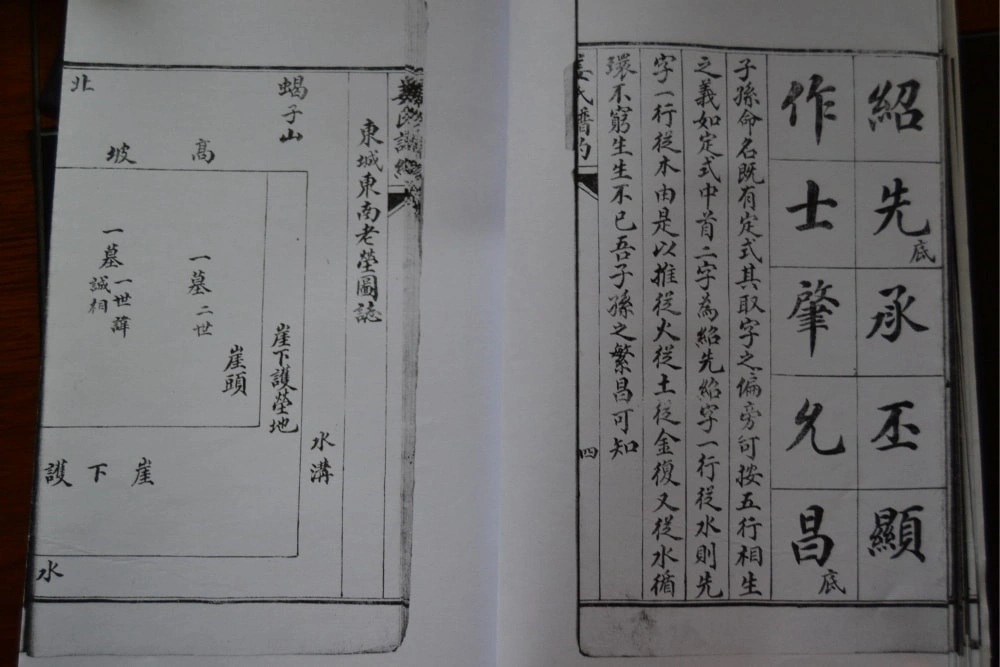 紹先底承丕顯
作士肇允昌底
子孫命名既有定式其取字之偏旁可按五行相生
之義如定式中首二字為紹先紹字一行從水則先
字一行從木由是以推從火從土從金復又從水循
環不窮生生不已吾子孫之繁昌可知
四
東城東南老塋圖誌
蝎子山
水溝
崖下護塋地
高坡
崖頭
一墓二世
一墓
一世諱
誠相
北
崖下護
水